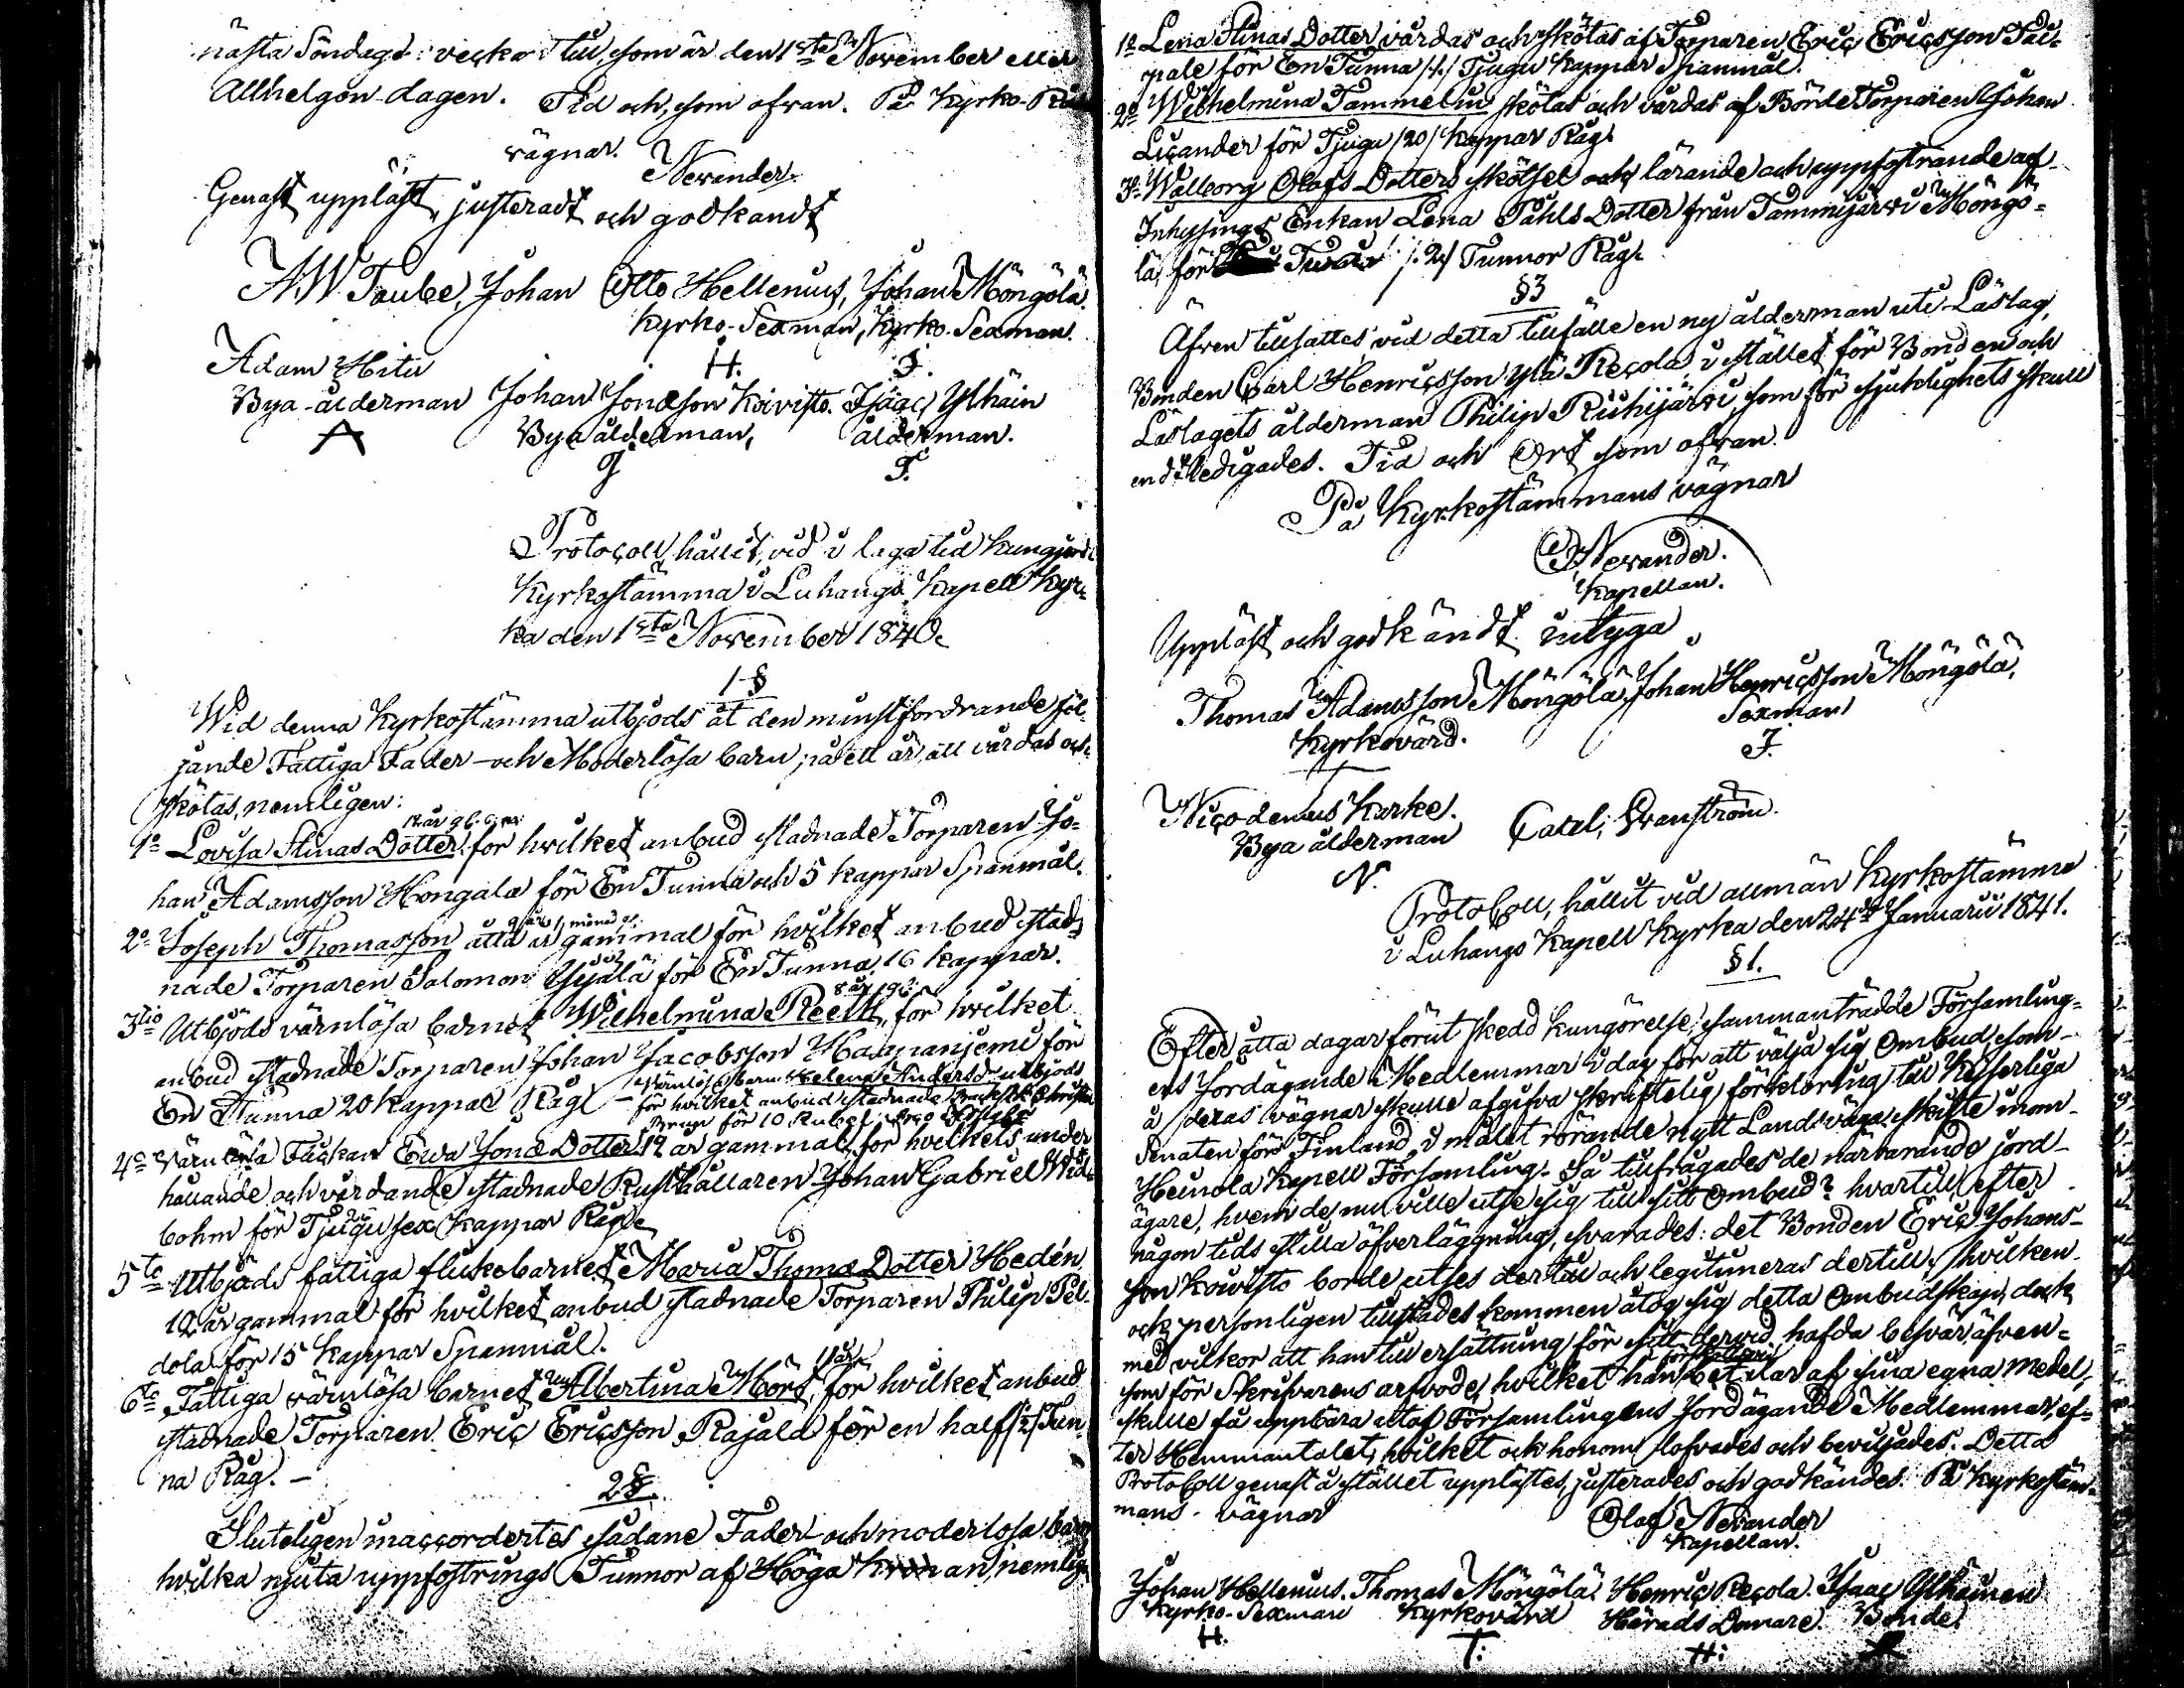 nästa Söndags vecka till, som är den 1sta November eller
Allhelgon-dagen. Tid och, som ofvan. På Kyrko-
vägnar. Nevander.
Genast uppläst, justeradt och godkändt
A.W. Taube, Johan Otto Hellenius, Johan Möngölä
Kyrko-Sexman, Kyrko-Sexman.
Adam Hitu H. J.
Bya-ålderman Johan Jonæson Koivisto. Isaac Ylhäin
A Bya ålderman, ålderman.
J. I.
Protocoll, hållit, vid i laga tid kungjord
Kyrkostämma i Luhango Kapell Kyr-
ka den 1sta November 1840.
1 §
Wid denna Kyrkostämma utbjöds åt den minstfordrande föl-
jande Fattiga Fader- och Moderlösa barn, på ett år, att vårdas och
skötas, nemligen:
1o Lovisa Stinas Dotter, för hvilket anbud stadnade Torparen Jo-
han Adamsson Hongala för En Tunna och 5 kappar Spanmål.
9 år 1 månad gl.
2o Joseph Thomasson åtta år gammal för hvilket anbud stad-
nade Torparen Salomon Yijälä för En Tunna, 16 kappar.
8 år gl.
3tio Utbjöds värnlösa barnet Wilhelmina Reeth, för hvilket
anbud stadnade Torparen Johan Jacobsson Haapanjemi för
En Tunna 20 kappar Råg.
värnlösa barnet Helena Andersdr utbjöds
för hvilket anbud stadnade
för 10 Rubel
4o Värnlösa Flickan Ewa Jonæ Dotter 12 år gammal, för hvilkets under
hållande och vårdande stadnade Rusthållaren Johan Gabriel Wid-
bohm för Tjugu sex kappar Råg.
5te Utbjöds fattiga flickobarnet Maria Thomæ Dotter Hedén
12 år gammal för hvilket anbud stadnade Torparen Philip Pel-
dola för 15 kappar Spanmål.
11 år
6te Fattiga värnlösa barnet Albertina Mört, för hvilket anbud
stadnade Torparen Eric Ericsson Rajala för en half /½/ Tun-
na Råg. -
2 §.
Sluteligen inaccordertes sådane Fader- och moderlösa barn
hvilka njuta uppfostrings Tunnor af Höga Kronan, nemlig
1o Lena Stinas Dotter vårdas och skötas af Torparen Eric Ericsson Tai-
pale för En Tunna /1/ Tjugu kappar Spanmål.
2o Wilhelmina Tammelin skötas och vårdas af Börde Torparen Johan
Licander för Tjugu /20/ kappar Råg.
3o Walborg Olofs Dotters skötsel och lärande och uppfostrande af
Inhysinges Enkan Lena Påhls Dotter från Tammijärvi Möngö-
lä, för /:2/ Tunnor Råg.
§ 3
Äfven tillsattes, vid detta tillfälle en ny ålderman uti Låslag,
Bonden Carl Henricsson Ylä Recola, i stället för Bonden och
Låslagets ålderman Philip Ruhijärvi, som för sjuklighets skull
endtledigades. Tid och Ort som ofvan.
På Kyrkostämmans vägnar
O. Nevander.
Kapellan.
Uppläst och godkändt intyga
Thomas Adamsson Möngölä, Johan Henricsson Möngölä,
Kyrkovärd. Sexman
J.
Nicodemus Karke. Carel, Granström.
Bya ålderman
N.
Protocoll, hållit vid allmän Kyrkostämma
i Luhango Kapell Kyrka den 24de Januarii 1841.
§ 1.
Efter åtta dagar förut skedd kungörelse, sammanträdde Församling-
ens Jordägande Medlemmar i dag för att välja sig Ombud, som
å deras vägnar skulle afgifva skriftelig förklaring till Kejserliga
Senaten för Finland, i målet rörande nytt Landsvägs skifte inom
Heinola Kapell Församling. Så tillfrågades de närvarande jord-
ägare, hvem de nu ville utse sig till sitt Ombud? hvartill efter
någon tids stilla öfverläggning, svarades: det Bonden Eric Johans-
son Koivisto borde utses dertill och legitimeras dertill, hvilken
ock personligen tillstädes kommen åtog sig detta Ombudskap, dock
med vilkor att han till ersättning för sitt dervid hafda besvär, äfven-
som för Skrifvarens arfvode, hvilket han betalar af sina egna medel,
skulle få uppbära utaf Församlingens Jordägande Medlemmar, ef-
ter Hemmantalet, hvilket ock honom lofvades och beviljades. Detta
Protocoll genast å stället upplästes, justerades och godkändes. På Kyrkostäm-
mans vägnar Olof Nevander
Kapellan.
Johan Hellenius. Thomas Möngölä. Henric Recola. Isaac Ylhäinen
Kyrko-Sexman Kyrkovärd Härads Domare. Bonde.
H. T. H.